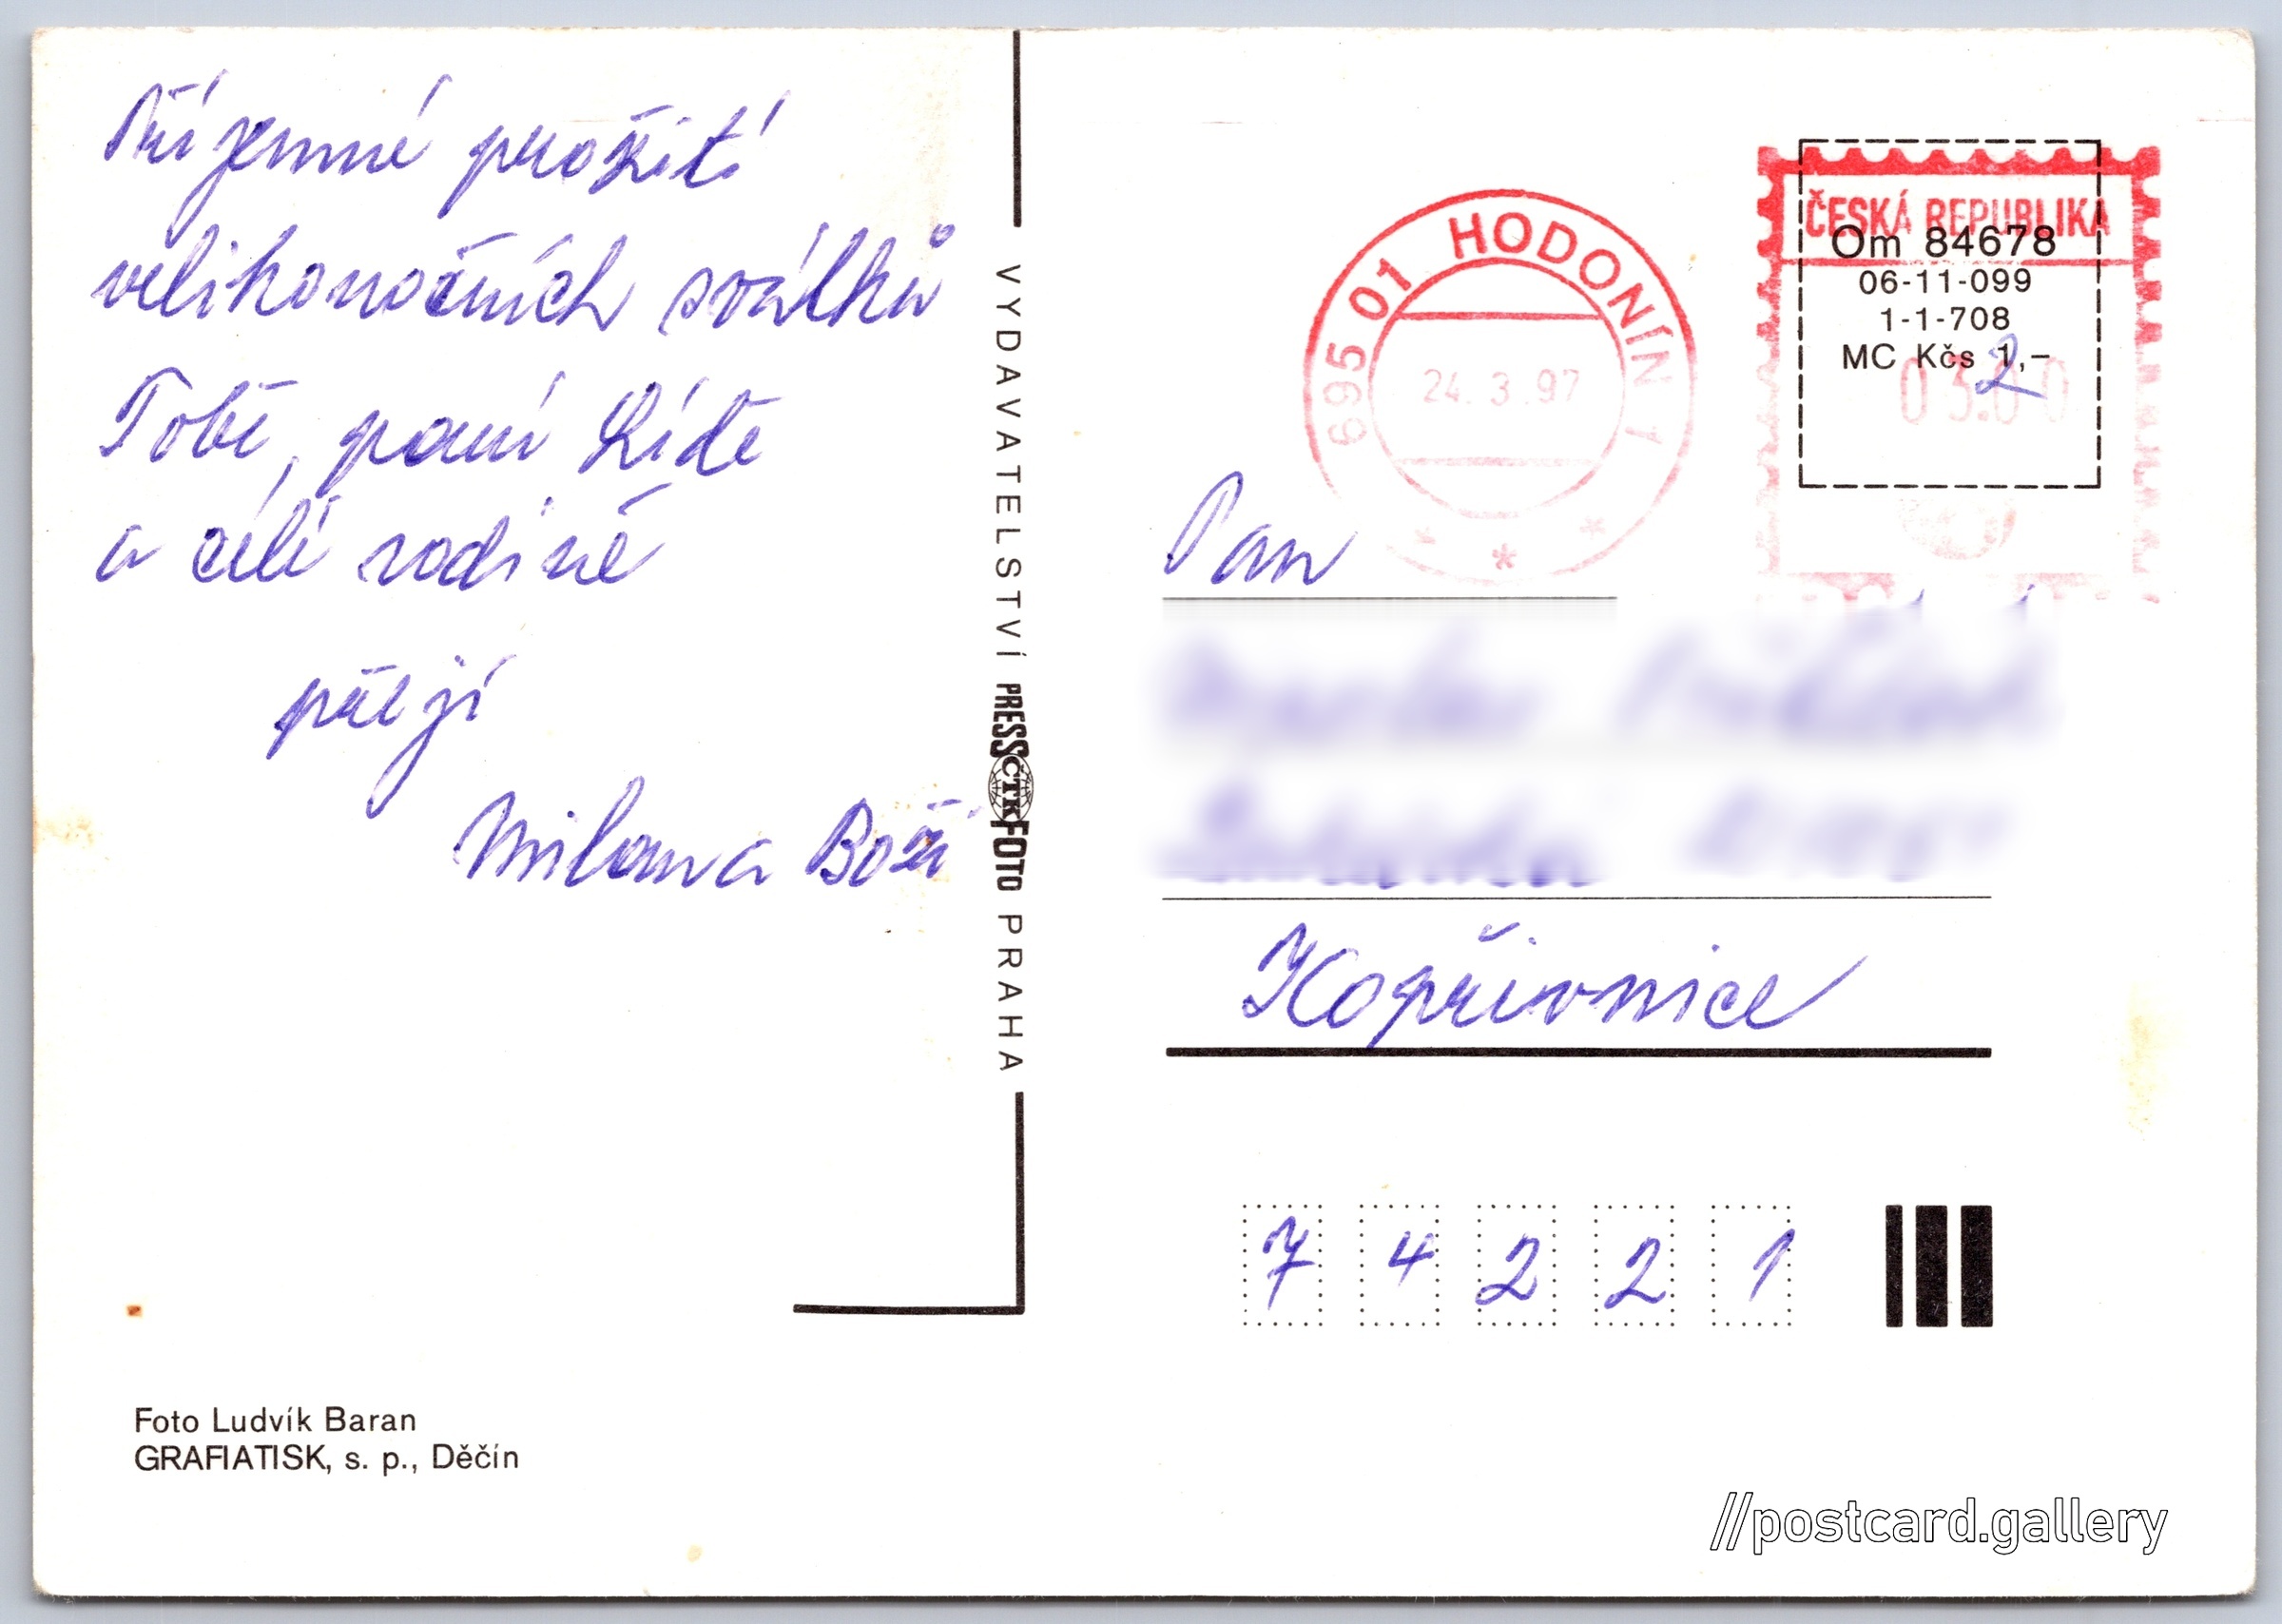 Příjemné prožití
velikonočních svátků
Tobě, paní Lídě
a celé rodině
přejí
Milan a Boži
VYDAVATELSTVÍ PRESSFOTO PRAHA
ČTK
695 01 HODONÍN 1
24.3.97
ČESKÁ REPUBLIKA
Om 84678
06-11-099
1-1-708
MC Kčs 1,-
2
03.00
Pan
Kopřivnice
7 4 2 2 1
Foto Ludvík Baran
GRAFIATISK, s. p., Děčín
//postcard.gallery